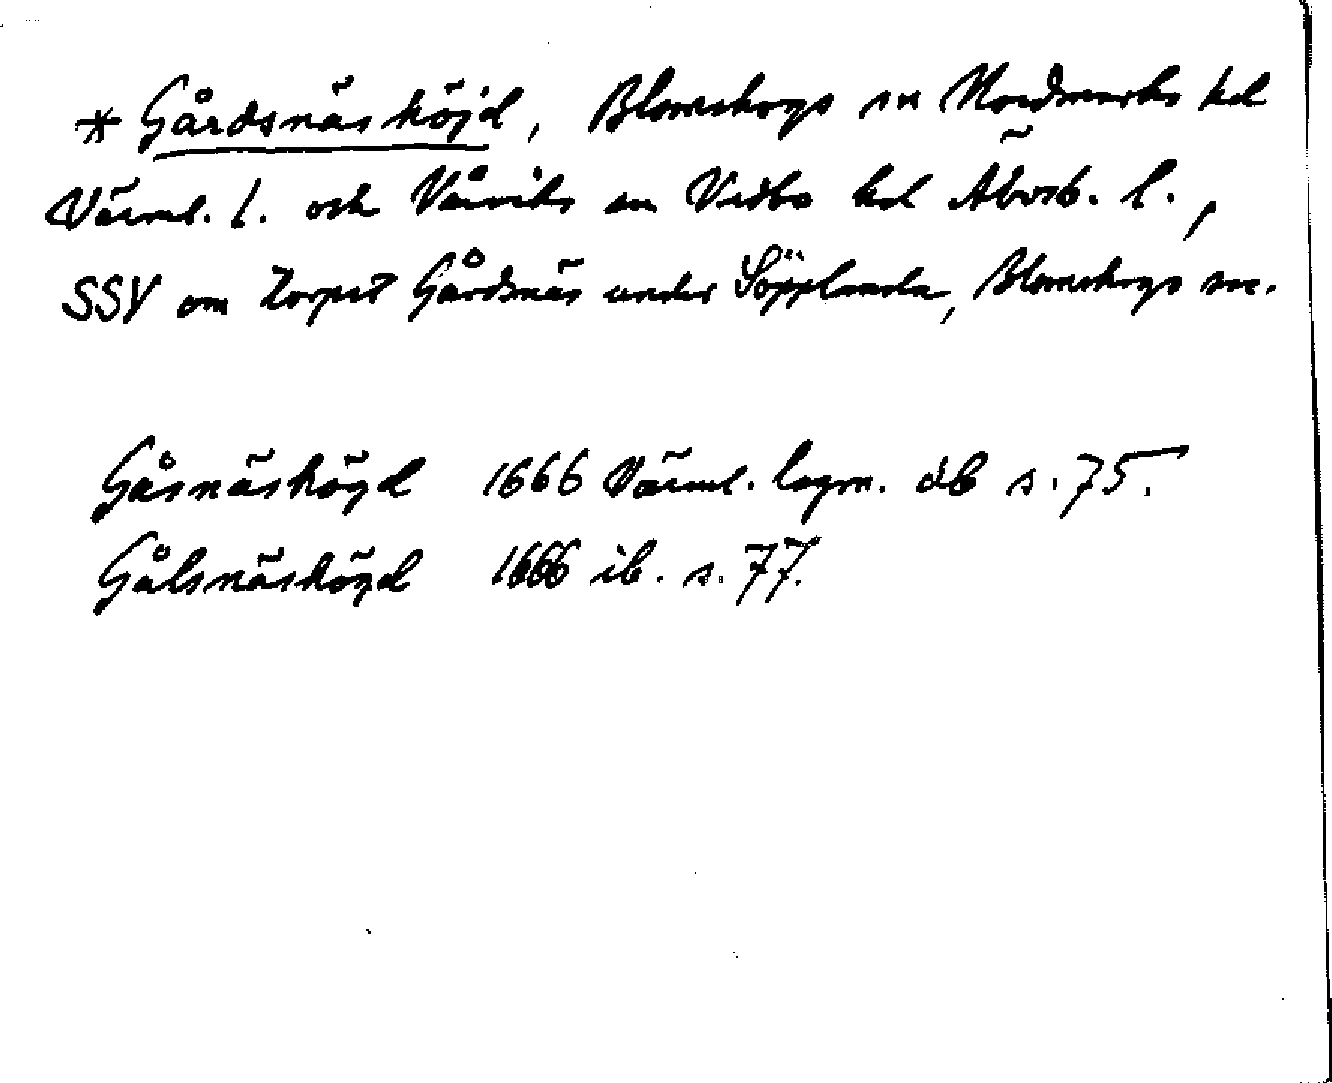 * Gårdsnäshöjd, Blomskogs sn Nordmarks hd
Värml. l. och Vårviks sn Vedbo hd Älvsb. l.,
SSV om torpet Gårdsnäs under Söpplanda, Blomskogs sn.
Gåsnäshögd 1666 Värml. lagm. db s. 75.
Gålsnäshögd 1666 ib. s. 77.